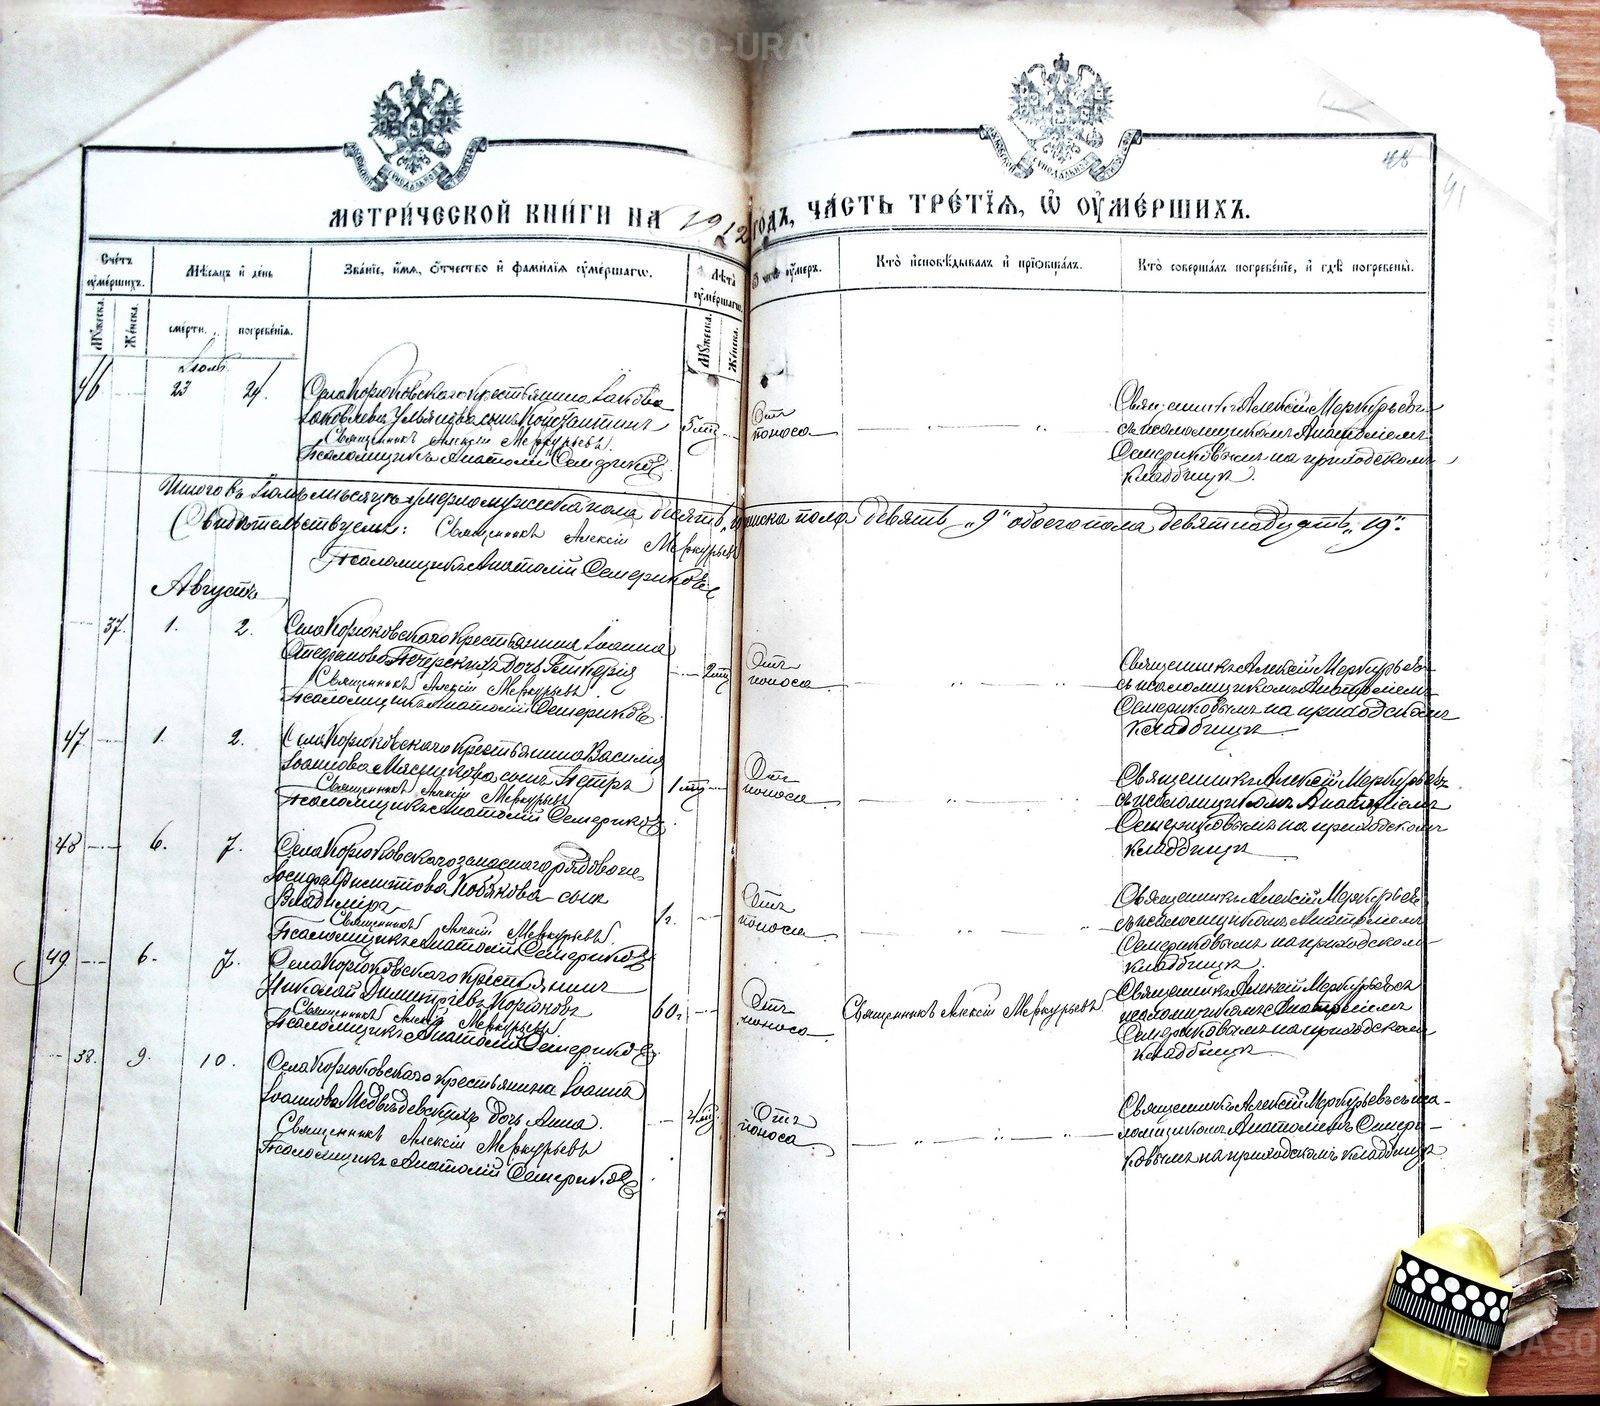 МЕТРИ́ЧЕСКОЙ КНИ́ГИ НА 1912 ГОДЪ, ЧА́СТЬ ТРЕ́ТЇЯ, Ѡ ОУМЕ́РШИХЪ.
Сче́тъ оуме́ршихъ.
Мѣ́сяцъ и҆ де́нь
Зва́нїе, и҆́мя, ѻ҆́тчество и҆ фами́лїя оуме́ршаго.
Лѣ́та оуме́ршаго.
Ѿ чегѡ̀ оу́меръ.
Кто̀ и҆сповѣ́дывалъ и҆ прїѡбща́лъ.
Кто̀ соверша́лъ погребе́нїе, и҆ гдѣ̀ погребены̀.
Му́жеска.
Же́нска.
сме́рти.
погребе́нїя.
Му́жеска.
Же́нска.
Іюль
46 23 24.
Села Корюковскаго крестьянина Іакова
Іаковлева Ульянова сынъ Константинъ
Священникъ Алексій Меркурьевъ.
Псаломщикъ Анатолій Семериковъ
Отъ
поноса
Священникъ Алексій Меркурьевъ
съ псаломщикомъ Анатоліемъ
Семериковымъ на приходскомъ
кладбищѣ.
Итого въ Іюль мѣсяцѣ умерло мужеска пола десять, женска пола девять „9" обоего пола девятнадцать „19".
Свидѣтельствуемъ: Священникъ Алексій Меркурьевъ
Псаломщикъ Анатолій Семериковъ
Августъ
37. 1. 2.
Села Корюковскаго крестьянина Іоанна
Стефанова Печерскихъ дочь Гликерія
Священникъ Алексій Меркурьевъ
Псаломщикъ Анатолій Семериковъ.
Отъ
поноса
Священникъ Алексій Меркурьевъ
съ псаломщикомъ Анатоліемъ
Семериковымъ на приходскомъ
кладбищѣ
47 1. 2.
Села Корюковскаго крестьянина Василія
Іоаннова Мясникова сынъ Петръ
Священникъ Алексій Меркурьевъ
Псаломщикъ Анатолій Семериковъ.
Отъ
поноса
Священникъ Алексій Меркурьевъ
съ псаломщикомъ Анатоліемъ
Семериковымъ на приходскомъ
кладбищѣ
48 6. 7.
Села Корюковскаго запаснаго рядоваго
Іосифа Кобякова сынъ
Владиміръ
Священникъ Алексій Меркурьевъ.
Псаломщикъ Анатолій Семериковъ
1 г.
Отъ
поноса
Священникъ Алексій Меркурьевъ
съ псаломщикомъ Анатоліемъ
Семериковымъ на приходскомъ
кладбищѣ.
49 6. 7.
Села Корюковскаго крестьянинъ
Николай Димитріевъ Корюковъ
Священникъ Алексій Меркурьевъ
Псаломщикъ Анатолій Семериковъ
60 г.
Отъ
поноса
Священникъ Алексій Меркурьевъ
Священникъ Алексій Меркурьевъ съ
псаломщикомъ Анатоліемъ
Семериковымъ на приходскомъ
кладбищѣ
38. 9. 10.
Села Корюковскаго крестьянина Іоанна
Іоаннова Медвѣдевскихъ дочь Анна.
Священникъ Алексій Меркурьевъ
Псаломщикъ Анатолій Семериковъ
Отъ
поноса
Священникъ Алексій Меркурьевъ съ пса-
ломщикомъ Анатоліемъ Семери-
ковымъ на приходскомъ кладбищѣ